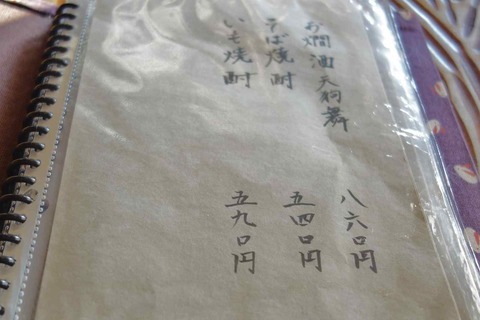 お燗酒天狗舞 八六〇円
そば焼酎 五四〇円
いも焼酎 五九〇円